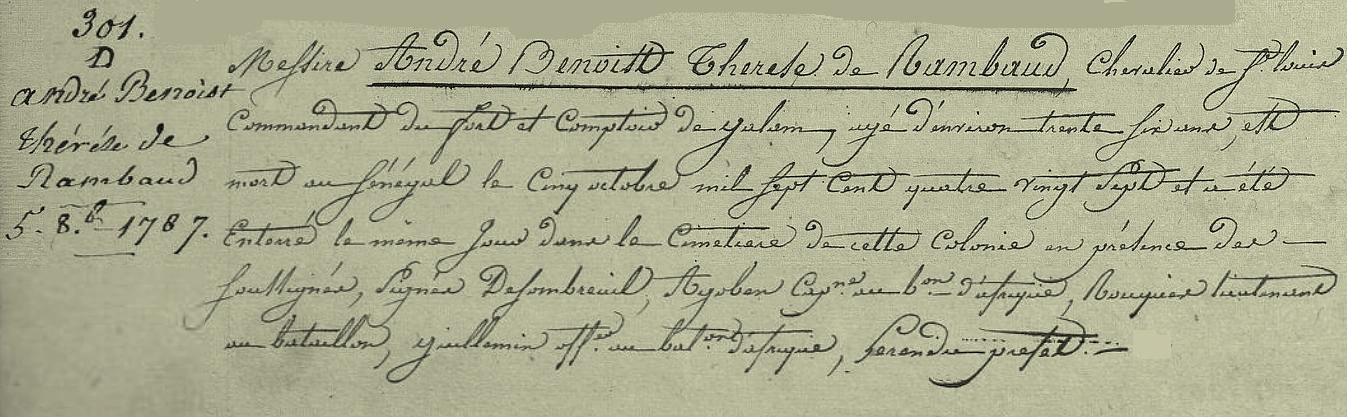 301.
D
André Benoist
thérése de
Rambaud
5. 8.b 1787.
Messire André Benoistt Therese de Rambaud, Chevalier de St. louis
Commandant du fort et Comptoir de galam, agé d'environ trente six ans, est
mort au Sénégal le Cinq octobre mil Sept Cent quatre vingt Sept et a été
Enterré le même Jour dans le Cimetiere de cette Colonie en présence des
Soussignés, Signés Desombreuil, Capne. au bon. d'afrique, Rouquier lieutenant
au bataillon, guillemin offer. au baton. d'afrique, préfet.